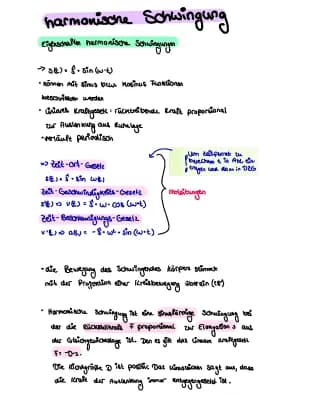 harmonische Schwingung
Eigenschaften harmonische Schwingungen
→ s(t) = ŝ · sin (ω·t)
• können mit Sinus bzw. Kosinus Funktionen
beschrieben werden
• lineares Kraftgesetz: rücktreibende Kraft proportional
zur Auslenkung aus Ruhelage
• verläuft periodisch
⇒ Zeit-Ort-Gesetz
s(t) = ŝ · sin (ωt)
Zeit-Geschwindigkeits-Gesetz
s'(t) ⇒ v(t) = ŝ · ω · cos (ω·t)
Zeit-Beschleunigungs-Gesetz
v'(t) ⇒ a(t) = -ŝ · ω² · sin (ω·t)
Um Zeitpunkt zu
berechnen t in Abl. ein-
tragen und dann in
Ableitungen
• die Bewegung des schwingendes Körpers stimmt
mit der Projektion einer Kreisbewegung überein
• Harmonische Schwingung ist eine Schwingung bei
der die Rückstellkraft F proportional zur Elongation s aus
der Gleichgewichtslage ist. Den es gilt das lineare Kraftgesetz
F = -D·s.
Die Richtgröße D ist positiv. Das Minuszeichen sagt aus, dass
die Kraft der Auslenkung immer entgegengesetzt ist.